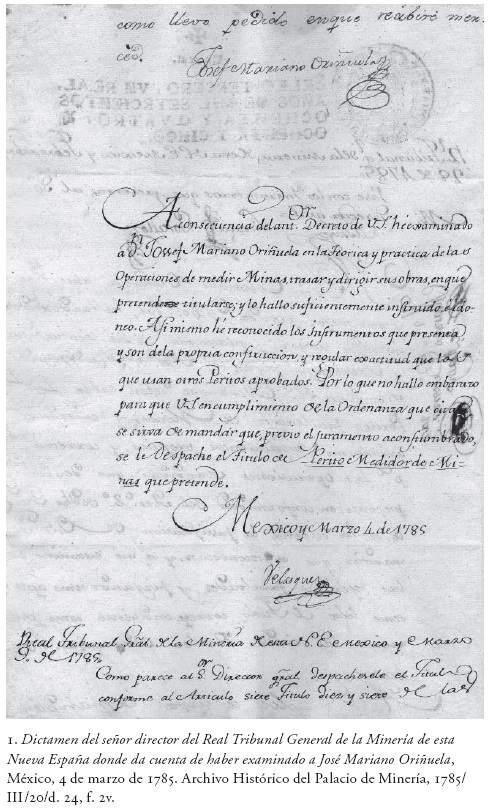 como llevo pedido enque recibiré mer-
ced.
Josef Mariano Oriñuela
A consecuencia del ant.or Decreto de V.S. he examinado
a dn Jossef Mariano Oriñuela en la Teorica y practica de las
Operaciones de medir Minas, trasar y dirigir sus obras, en que
pretende titularse; y lo hallo suficientemente instruido é ido-
neo. Asi mismo hé reconocido los instrumentos que presenta
y son de la propria construccion y regular exactitud que los
que usan otros Peritos aprobados. Por lo que no hallo embarazo
para que V.S. en cumplimiento de la Ordenanza que
se sirva de mandar que, previo el juramento acostumbrado,
se le despache el Titulo de Perito Medidor de Mi-
nas que pretende.
Mexico y Marzo 4. de 1785
Velasquez
Real Tribunal Gral. de la Mineria de esta N.E. Mexico y Marzo
de 1785.
Como parece al Sor. Director gral. despachesele el Titulo
conforme al Articulo siete Titulo diez y siete de las
1. Dictamen del señor director del Real Tribunal General de la Minería de esta
Nueva España donde da cuenta de haber examinado a José Mariano Oriñuela,
México, 4 de marzo de 1785. Archivo Histórico del Palacio de Minería, 1785/
III/20/d. 24, f. 2v.